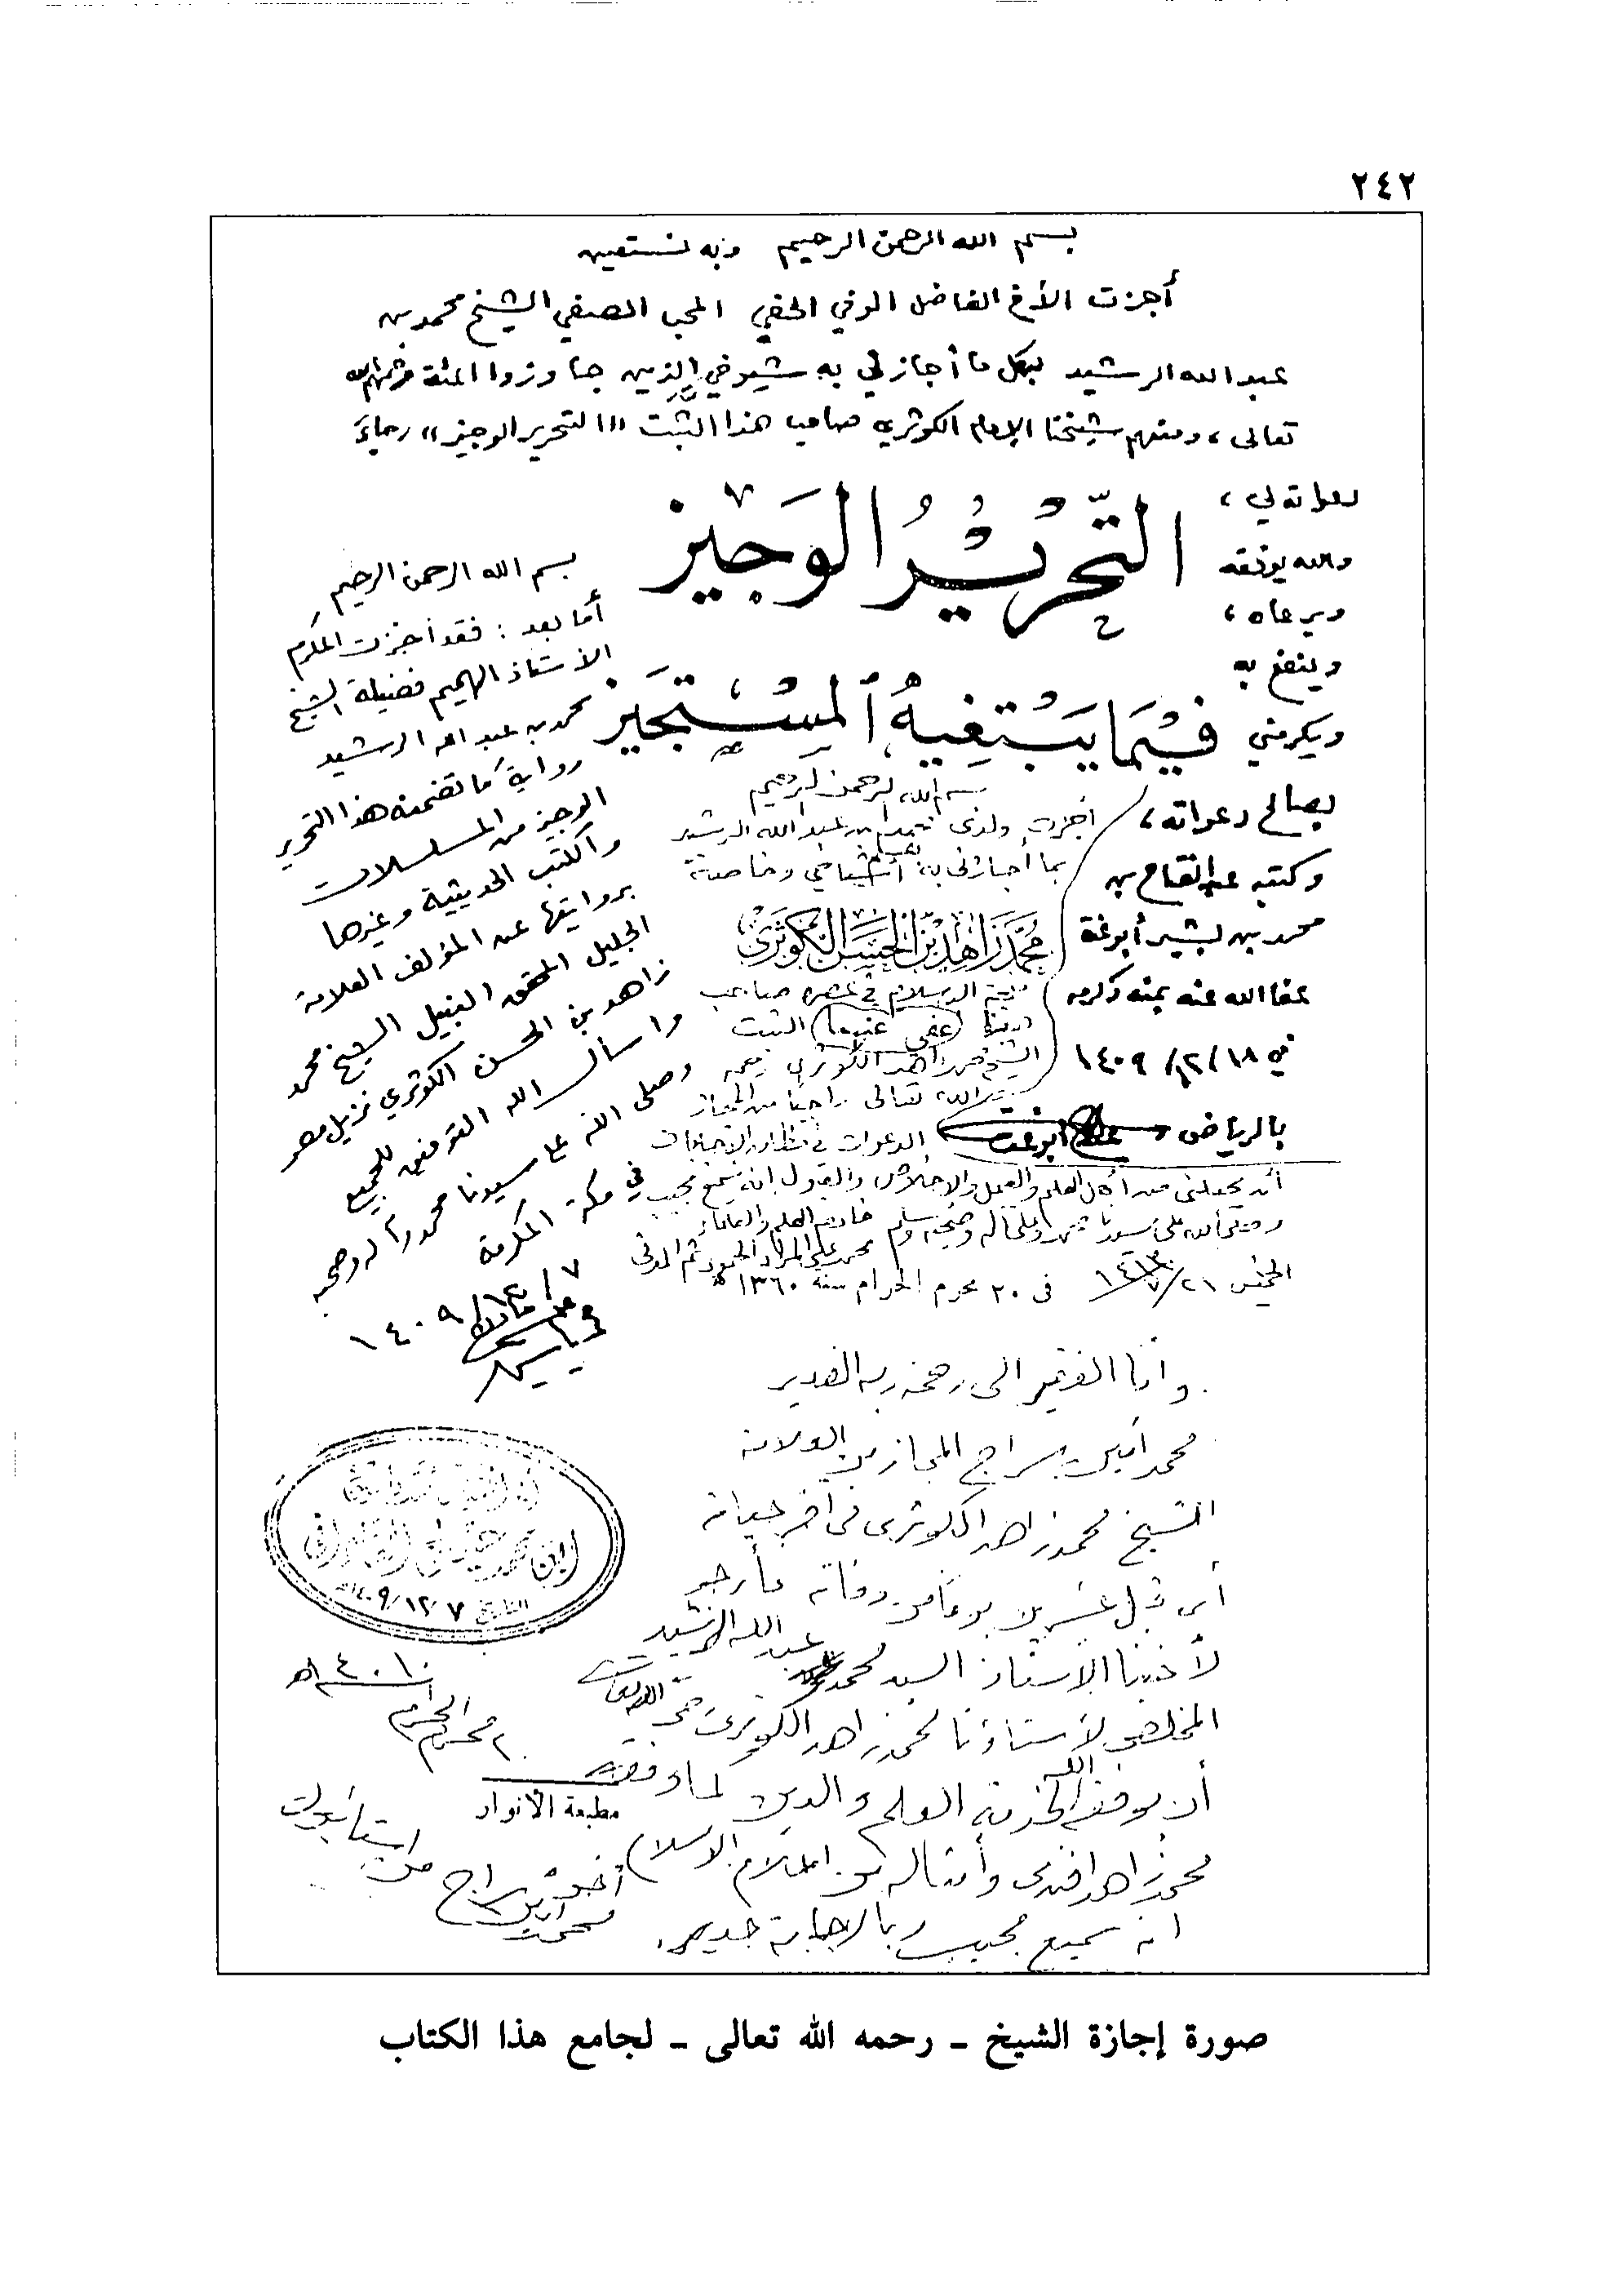 ٢٤٢
بسم الله الرحمن الرحيم وبه نستعين
أجزت الأخ الفاضل الوفي الحفي المحب الصفي الشيخ محمد بن
عبد الله الرشيد بكل ما أجازني به شيوخي الذين جاوزوا المئة رحمهم الله
تعالى، ومنهم شيخنا الإمام الكوثري صاحب هذا الثبت «التحرير الوجيز» رجاءَ
دعواته لي،
والله يوفقه
ويرعاه،
وينفع به
ويكرمني
بصالح دعواته،
وكتبه عبد الفتاح بن
محمد بن بشير أبو غدة
عفا الله عنه بمنه وكرمه
في ١٨/١٢/١٤٠٩
بالرياض
التَّحْرِيْرُ الوَجِيْز
فِيْمَا يَبْتَغِيهُ ٱلمُسْتَجِيَز
بسم الله الرحمن الرحيم
أما بعد: فقد أجزت المكرم
الأستاذ الهميم فضيلة الشيخ
محمد بن عبد الله الرشيد
رواية ما تضمنه هذا التحرير
الوجيز من المسلسلات
والكتب الحديثية وغيرها
بروايتها عن المؤلف العلامة
الجليل المحقق النبيل الشيخ محمد
زاهد بن الحسن الكوثري نزيل مصر
وأسأل الله التوفيق للجميع
وصلى الله على سيدنا محمد وآله وصحبه
في مكة المكرمة
٧/١٢/١٤٠٩
بسم الله الرحمن الرحيم
أجزت ولدي محمد بن عبد الله الرشيد
بما أجازني به أشياخي وخاصة
مُحَمَّد زَاهِد بْن الحَسَن الكَوْثَرِيّ
الإسلام في عصره صاحب
(عفي عنهما) الثبت
الشيخ محمد زاهد الكوثري رحمه
الله تعالى راجيا من المجاز
الدعوات في
أن يجعلني من أهل العلم والعمل والإخلاص والقبول إنه سميع مجيب
وصلى الله على سيدنا محمد وعلى آله وصحبه وسلم خادم العلم والعلماء
محمد علي المراد الحموي ثم المدني
الخميس ٢١/٧/١٤١٣
في ٢٠ محرم الحرام سنة ١٣٦٠
وأنا الفقير إلى رحمة ربه القدير
محمد أمين سراج المجاز من العلامة
الشيخ محمد زاهد الكوثري في آخر حياته
أي قبل عشرين يوما من وفاته
لأخينا الأستاذ السيد محمد عبد الله الرشيد
المخلص لأستاذنا محمد زاهد الكوثري رحمه الله تعالى
أن يوفقه الله لخدمة العلم والدين كما وفق
محمد زاهد افندي وأمثاله من أعلام الإسلام
انه سميع مجيب وبالإجابة جدير.
التاريخ ١٤٠٩/١٢/٧
١٤٠١٠ هـ
٢٠ محرم الحرام
مطبعة الأنوار
أخوكم محمد أمين سراج
من استانبول
صورة إجازة الشيخ ـ رحمه الله تعالى ـ لجامع هذا الكتاب